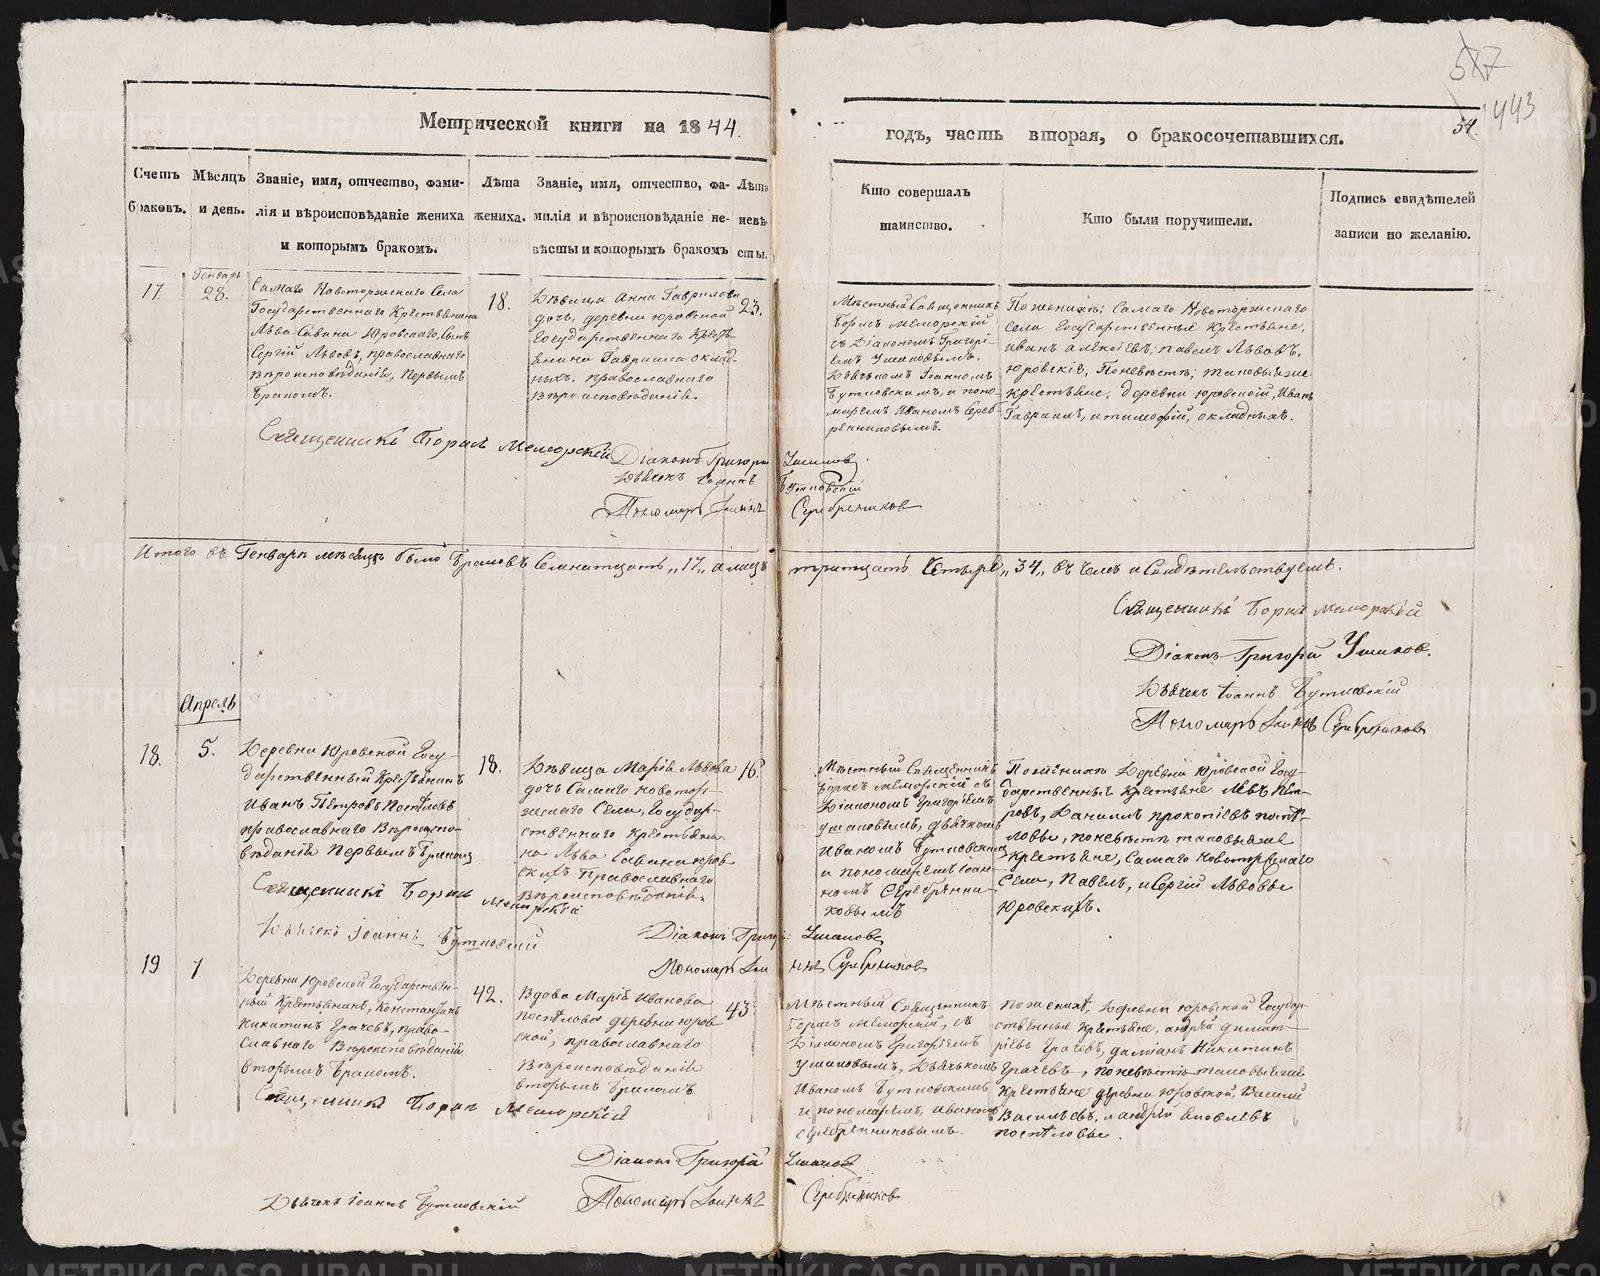 517
443
54.
Метрической книги на 1844.
годъ, часть вторая, о бракосочетавшихся.
Счетъ браковъ.
Мѣсяцъ и день.
Званіе, имя, отчество, фами-
лія и вѣроисповѣданіе жениха
и которымъ бракомъ.
Лѣта жениха.
Званіе, имя, отчество, фа-
милія и вѣроисповѣданіе не-
вѣсты и которымъ бракомъ
Лѣта невѣ-
сты.
Кто совершалъ
таинство.
Кто были поручители.
Подпись свидѣтелей
записи по желанію.
17.
Генварь
28.
Самаго Новоторжскаго Села
Государственнаго Крестьянина
Льва Савина Юровскаго, сынъ
Сергій Львовъ, православнаго
Вѣроисповѣданія, Первымъ
Бракомъ.
18.
Дѣвица Анна Гаврилова
дочь, деревни Юровской
Государственнаго Кресть-
янина Гавриила Оклад-
ныхъ, православнаго
Вѣроисповѣданія.
23.
Мѣстный Священникъ
Борисъ Меморскій
съ Діакономъ Григорі-
емъ Ушаковымъ,
Дьячкомъ Іоанномъ
Бутковскимъ, и поно-
маремъ Иваномъ Сереб-
рениковымъ.
По женихѣ; Самаго Новоторжскаго
Села Государственные Крестьяне,
Иванъ Алексіевъ; Павелъ Львовъ,
Юровскіе, По невѣстѣ; таковые же
Крестьяне, деревни Юровской, Иванъ
Гавриилъ, и Тимофій, Окладныхъ.
Священникъ Борисъ Меморскій
Діаконъ Григорій Ушаковъ
Дьячекъ Іоаннъ Бутковскій
Пономарь Іоаннъ Серебрениковъ
Итого въ Генварѣ мѣсяцѣ было Браковъ Семнатцать „17„ а лицъ тритцать Четыре „34„ въ чемъ и Свидѣтельствуемъ.
Священникъ Борисъ Меморскій
Діаконъ Григорій Ушаковъ.
Дьячекъ Іоаннъ Бутковскій
Пономарь Іоаннъ Серебрениковъ
Апрель
18.
5.
Деревни Юровской Госу-
дарственный Крестьянинъ
Иванъ Петровъ Постѣловъ
православнаго Вѣроиспо-
вѣданія Первымъ Бракомъ
18.
Дѣвица Марія Львова
дочь Самаго Новотор-
жскаго Села, Государ-
ственнаго Крестьяни-
на Льва Савина Юров-
скихъ Православнаго
Вѣроисповѣданія.
16.
Мѣстный Священникъ
Борисъ Меморскій съ
Діакономъ Григоріемъ
Ушаковымъ, дьячкомъ
Иваномъ Бутковскимъ
и пономаремъ Іоан-
номъ Серебренни-
ковымъ
По женихѣ Деревни Юровской Госу-
дарственные Крестьяне Левъ Пет-
ровъ, Даниилъ Прокопіевъ Постѣ-
ловы, по невѣстѣ таковые же
Крестьяне, Самаго Новоторжскаго
Села, Павелъ, и Сергій Львовы
Юровскихъ.
Священникъ Борисъ Меморскій
Дьячекъ Іоаннъ Бутковскій
Діаконъ Григорій Ушаковъ
Пономарь Іоаннъ Серебрениковъ
19
7
Деревни Юровской Государствен-
ный Крестьянинъ, Константинъ
Никитинъ Грачевъ, право-
славнаго Вѣроисповѣданія
вторымъ Бракомъ.
42.
Вдова Марія Иванова
Постѣлова деревни Юров-
ской, православнаго
Вѣроисповѣданія
вторымъ Бракомъ
43.
Мѣстный Священникъ
Борисъ Меморскій, съ
Діакономъ Григоріемъ
Ушаковымъ, Дьячкомъ
Иваномъ Бутковскимъ
и пономаремъ, Иваномъ
Серебренниковымъ.
По женихѣ, Деревни Юровской Госуда-
рственные Крестьяне, Андрей Димит-
ріевъ Грачевъ, Даміанъ Никитинъ
Грачевъ, по невѣстѣ таковые же
Крестьяне деревни Юровской, Василій
Васильевъ, и Андрей Яковлевъ
Постѣловы.
Священникъ Борисъ Меморскій
Діаконъ Григорій Ушаковъ
Дьячекъ Іоаннъ Бутковскій
Пономарь Іоаннъ Серебрениковъ
METRIKI.CASO-URAL.RU